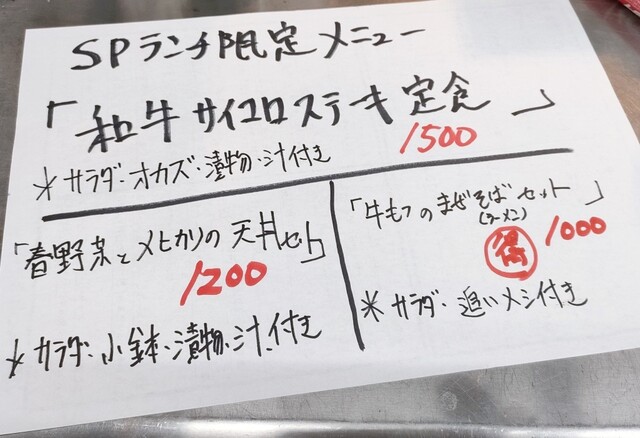 SPランチ限定メニュー
「和牛サイコロステーキ定食」
1500
*サラダ・オカズ・漬物・汁付き
「春野菜とメヒカリの天丼セット」
1200
*サラダ・小鉢・漬物・汁付き
「牛もつのまぜそばセット」
(ラーメン)
得 1000
*サラダ・追いメシ付き